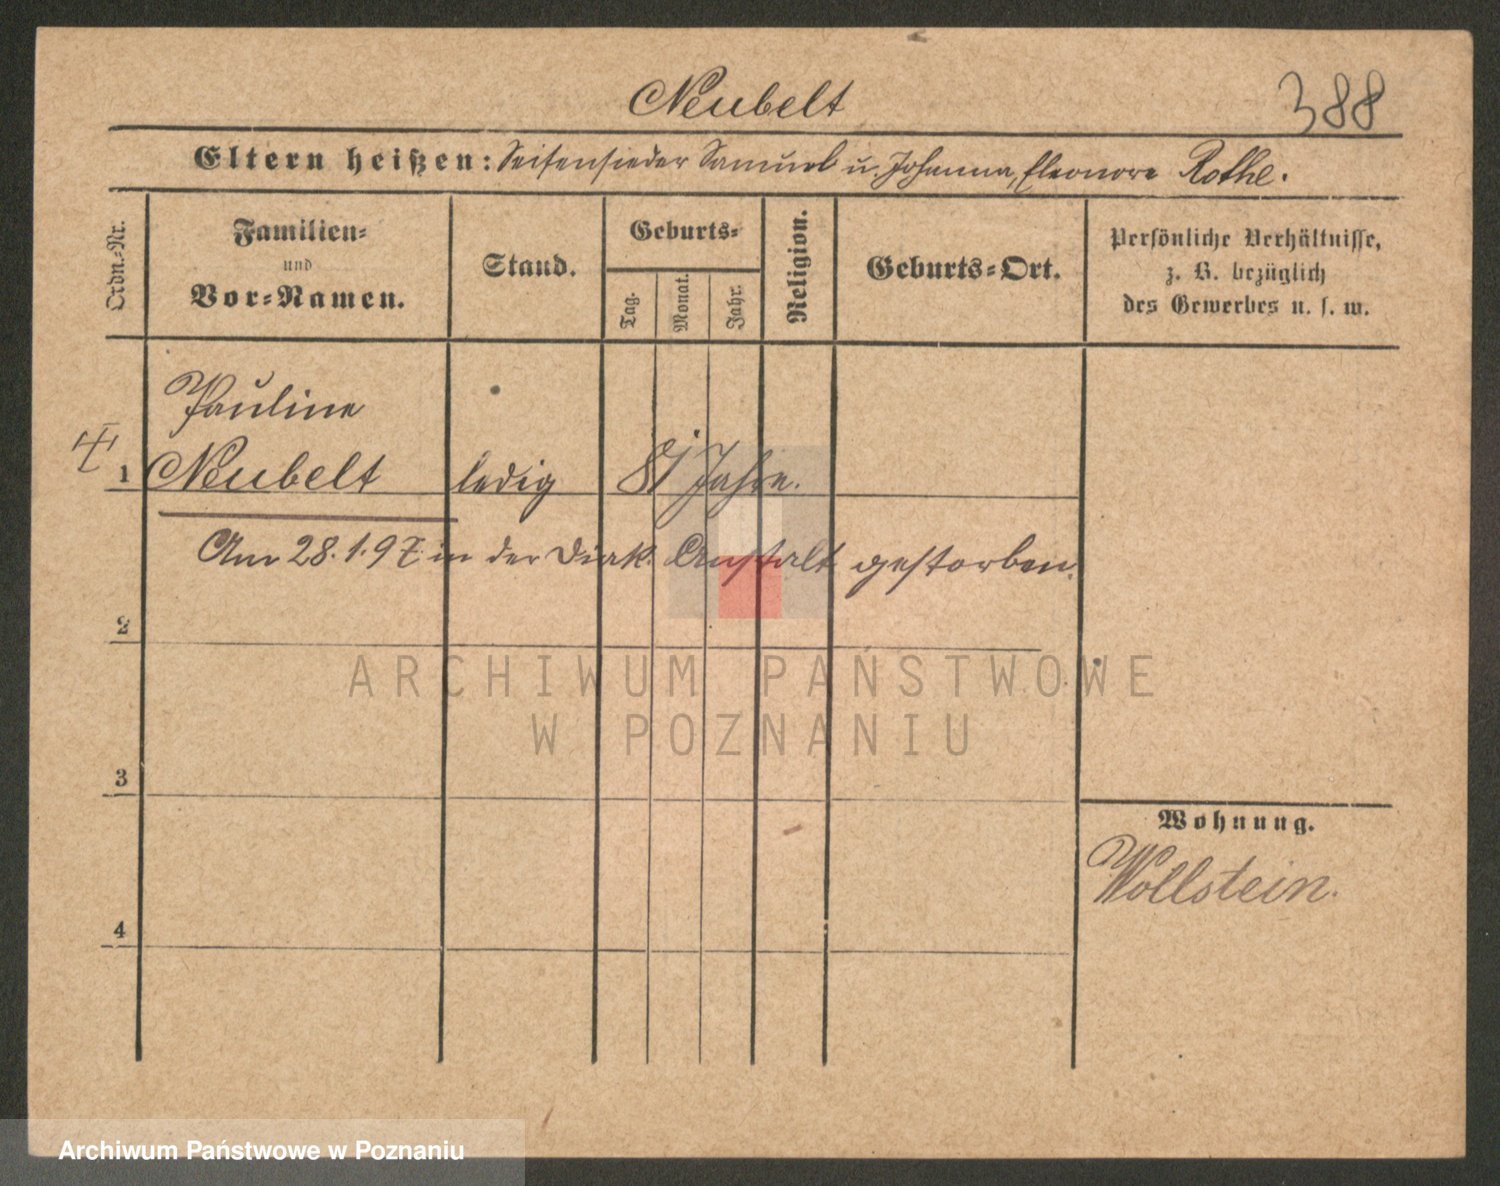 Neubelt
388
Eltern heißen: Seifensieder Samuel u. Johanna, Eleonore Rothe.
Ordn.-Nr.
Familien-
und
Vor-Namen.
Stand.
Geburts-
Tag.
Monat.
Jahr.
Religion.
Geburts-Ort.
Persönliche Verhältnisse,
z. B. bezüglich
des Gewerbes u. s. w.
Pauline
1 Neubelt ledig 81 Jahre.
Am 28.1.97 in der Diak. Anstalt gestorben.
2
ARCHIWUM PAŃSTWOWE
W POZNANIU
3
Wohnung.
Wollstein.
4
Archiwum Państwowe w Poznaniu